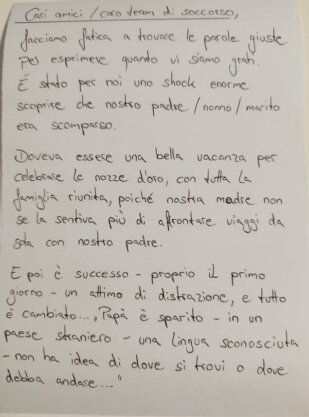 Cari amici / caro team di soccorso,
facciamo fatica a trovare le parole giuste
per esprimere quanto vi siamo grati.
È stato per noi uno shock enorme
scoprire che nostro padre / nonno / marito
era scomparso.
Doveva essere una bella vacanza per
celebrare le nozze d'oro, con tutta la
famiglia riunita, poiché nostra madre non
se la sentiva più di affrontare viaggi da
sola con nostro padre.
E poi è successo - proprio il primo
giorno - un attimo di distrazione, e tutto
è cambiato... „Papà è sparito - in un
paese straniero - una lingua sconosciuta
- non ha idea di dove si trovi o dove
debba andare..."